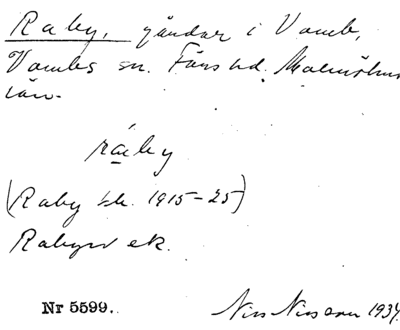 Raby, gårdar i Vomb,
Vombs sn. Färs hd. Malmöhus
län.
ráby
(Raby bk. 1915-25)
Rabyn ek.
Nr 5599. Nils Nilsson 1934